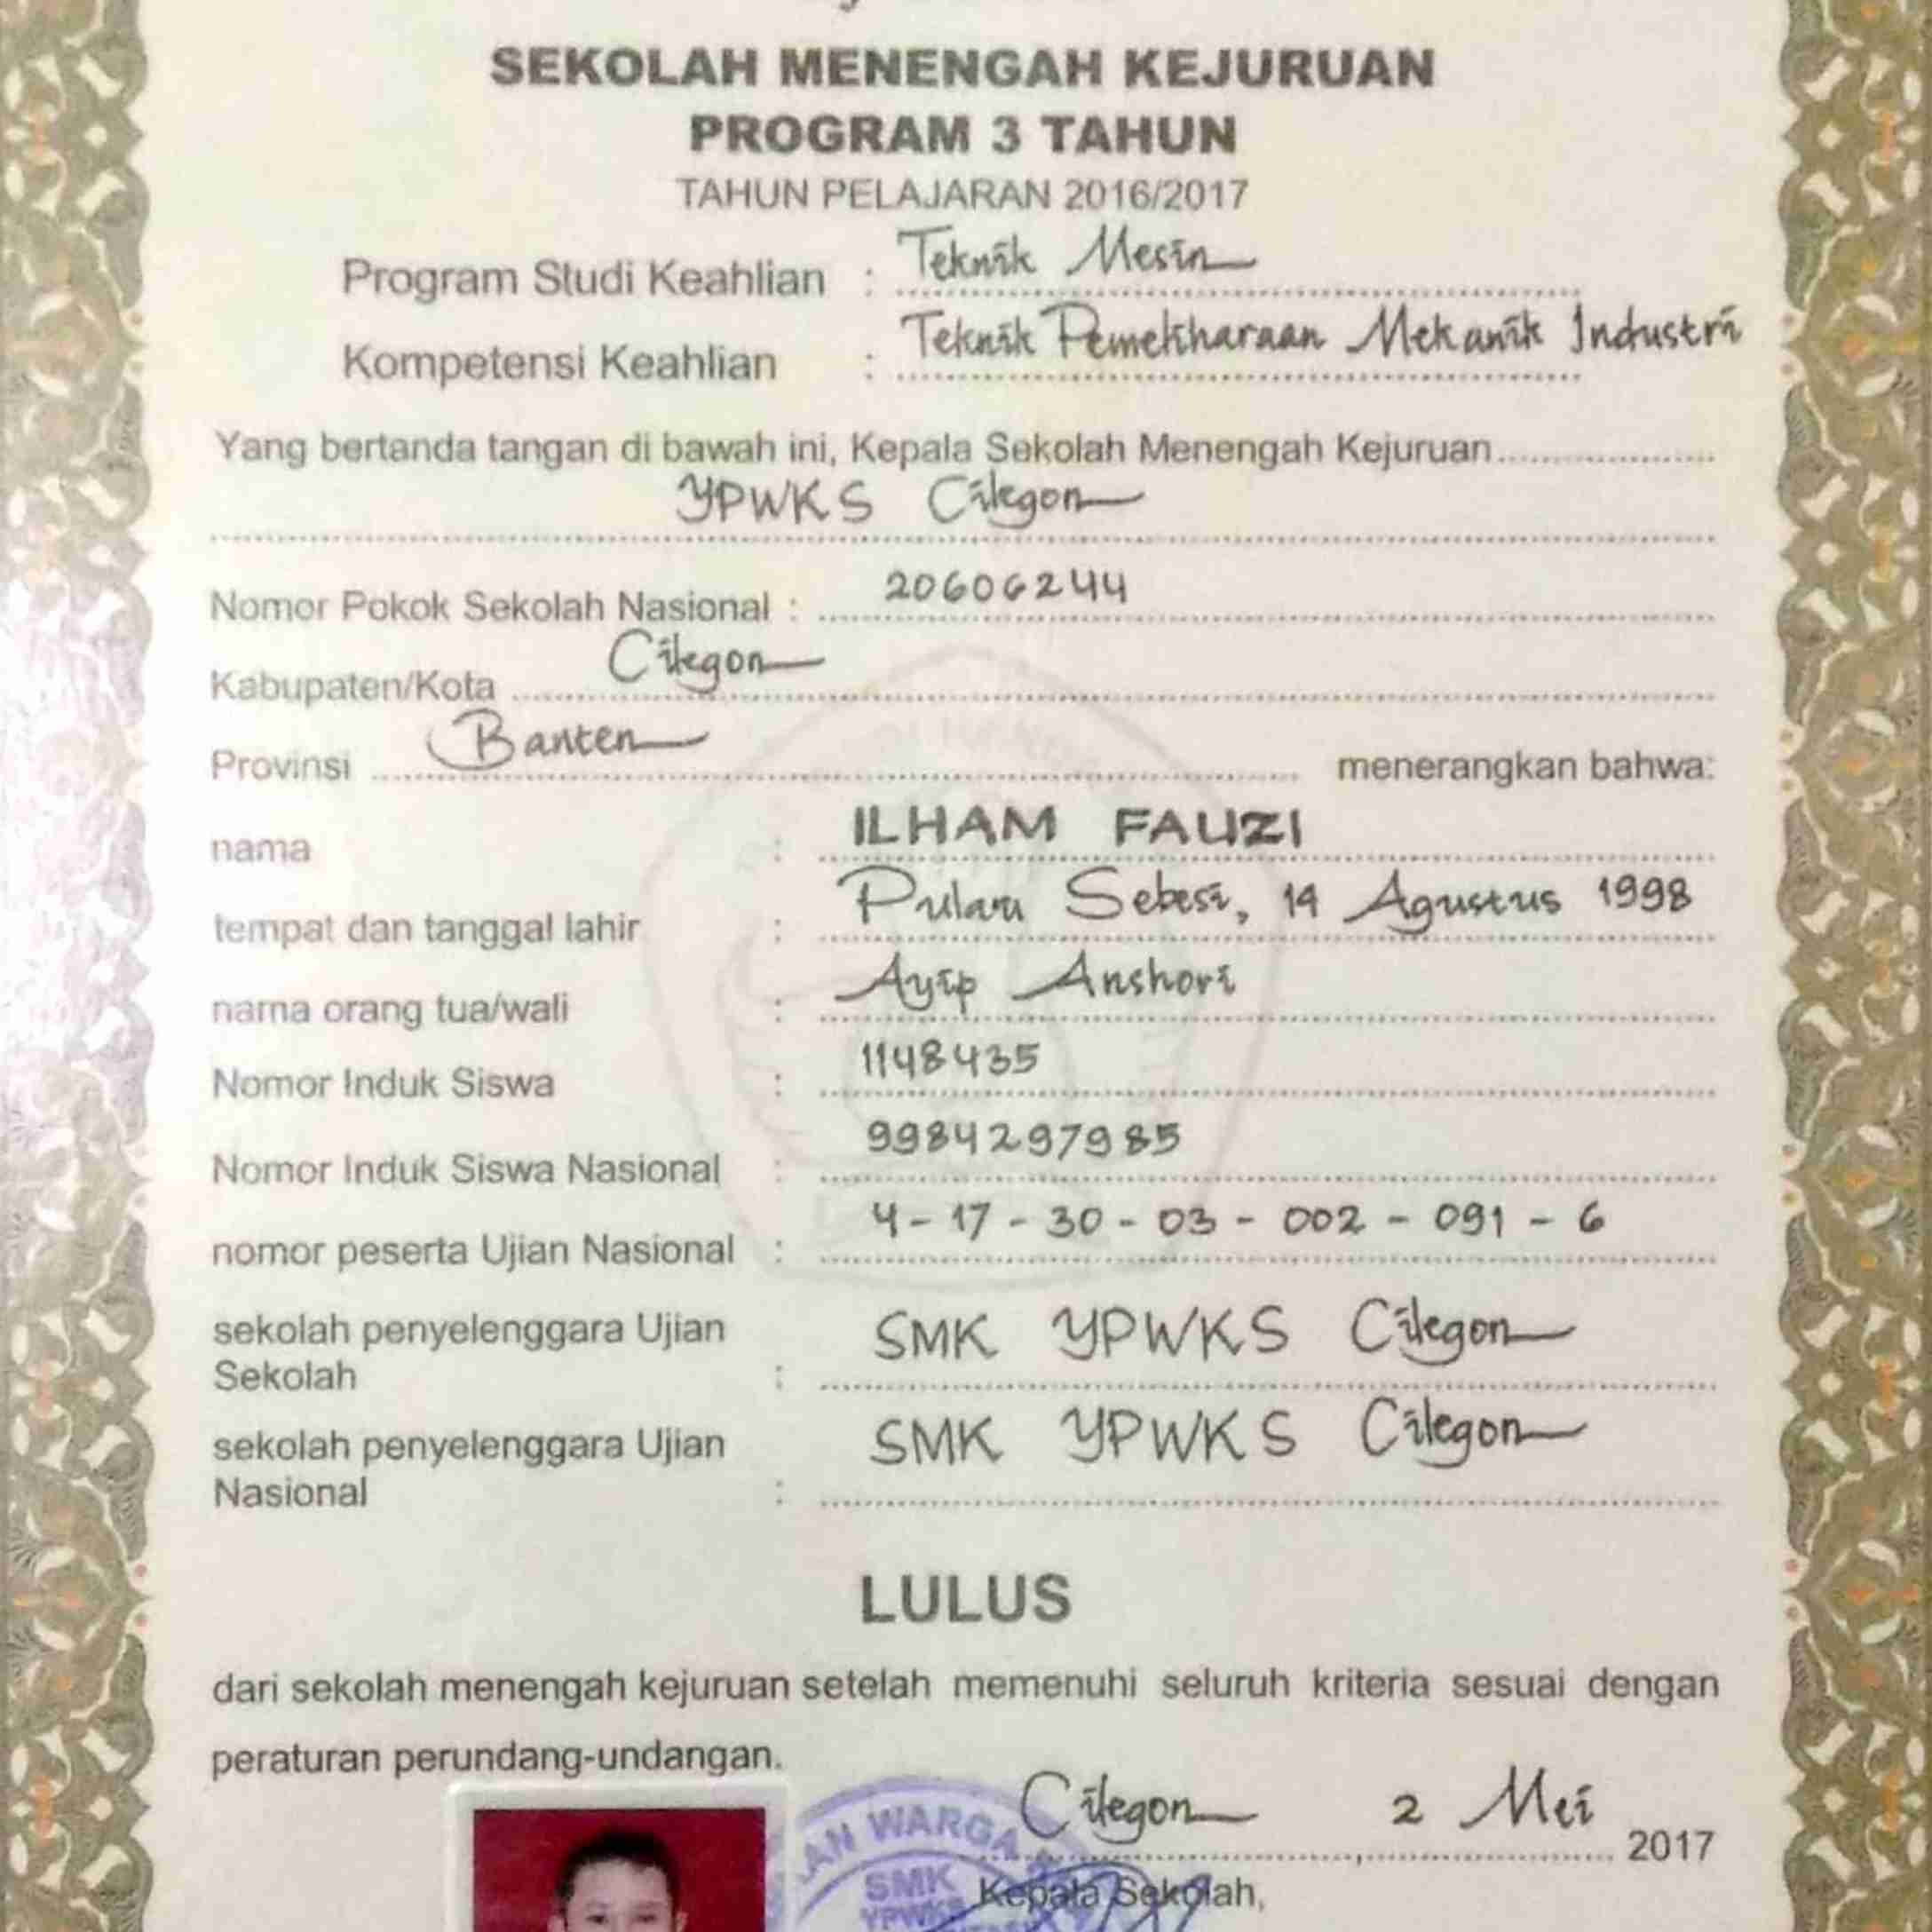 SEKOLAH MENENGAH KEJURUAN
PROGRAM 3 TAHUN
TAHUN PELAJARAN 2016/2017
Program Studi Keahlian : Teknik Mesin
Kompetensi Keahlian : Teknik Pemeliharaan Mekanik Industri
Yang bertanda tangan di bawah ini, Kepala Sekolah Menengah Kejuruan
YPWKS Cilegon
Nomor Pokok Sekolah Nasional : 20606244
Kabupaten/Kota Cilegon
Provinsi Banten menerangkan bahwa:
nama : ILHAM FAUZI
tempat dan tanggal lahir : Pulau Sebesi, 14 Agustus 1998
nama orang tua/wali : Ayip Anshori
Nomor Induk Siswa : 1148435
Nomor Induk Siswa Nasional : 9984297985
nomor peserta Ujian Nasional : 4-17-30-03-002-091-6
sekolah penyelenggara Ujian
Sekolah : SMK YPWKS Cilegon
sekolah penyelenggara Ujian
Nasional : SMK YPWKS Cilegon
LULUS
dari sekolah menengah kejuruan setelah memenuhi seluruh kriteria sesuai dengan
peraturan perundang-undangan.
Cilegon, 2 Mei 2017
WARGA
SMK
YPWKS
Kepala Sekolah,